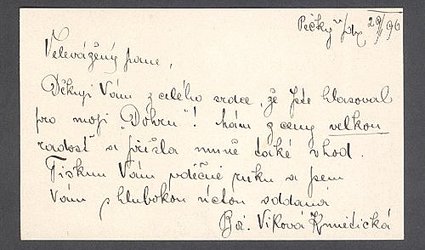 Pečky 29/96
Velevážený pane,
Děkuji Vám z celého srdce, že jste hlasoval
pro moji "Dohru"! Mám z ceny velkou
radost a přišla mně také vhod.
Tisknu Vám vděčně ruku a jsem
Vám s hlubokou úctou oddaná
Bož. Viková Kunětická